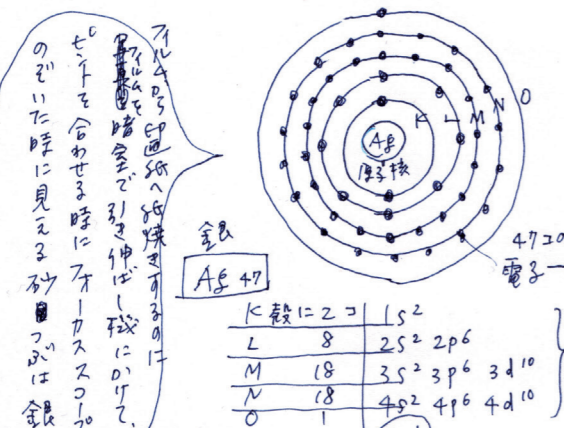 フィルムから印画紙へ紙焼きするのに
フィルムを暗室で引き伸ばし機にかけて、
ピントを合わせる時にフォーカススコープ
のぞいた時に見える砂つぶは銀
K L M N O
Ag
原子核
47コの
電子
銀
Ag 47
K殻に2コ 1s² 
L 8 2s² 2p⁶
M 18 3s² 3p⁶ 3d¹⁰
N 18 4s² 4p⁶ 4d¹⁰
O 1